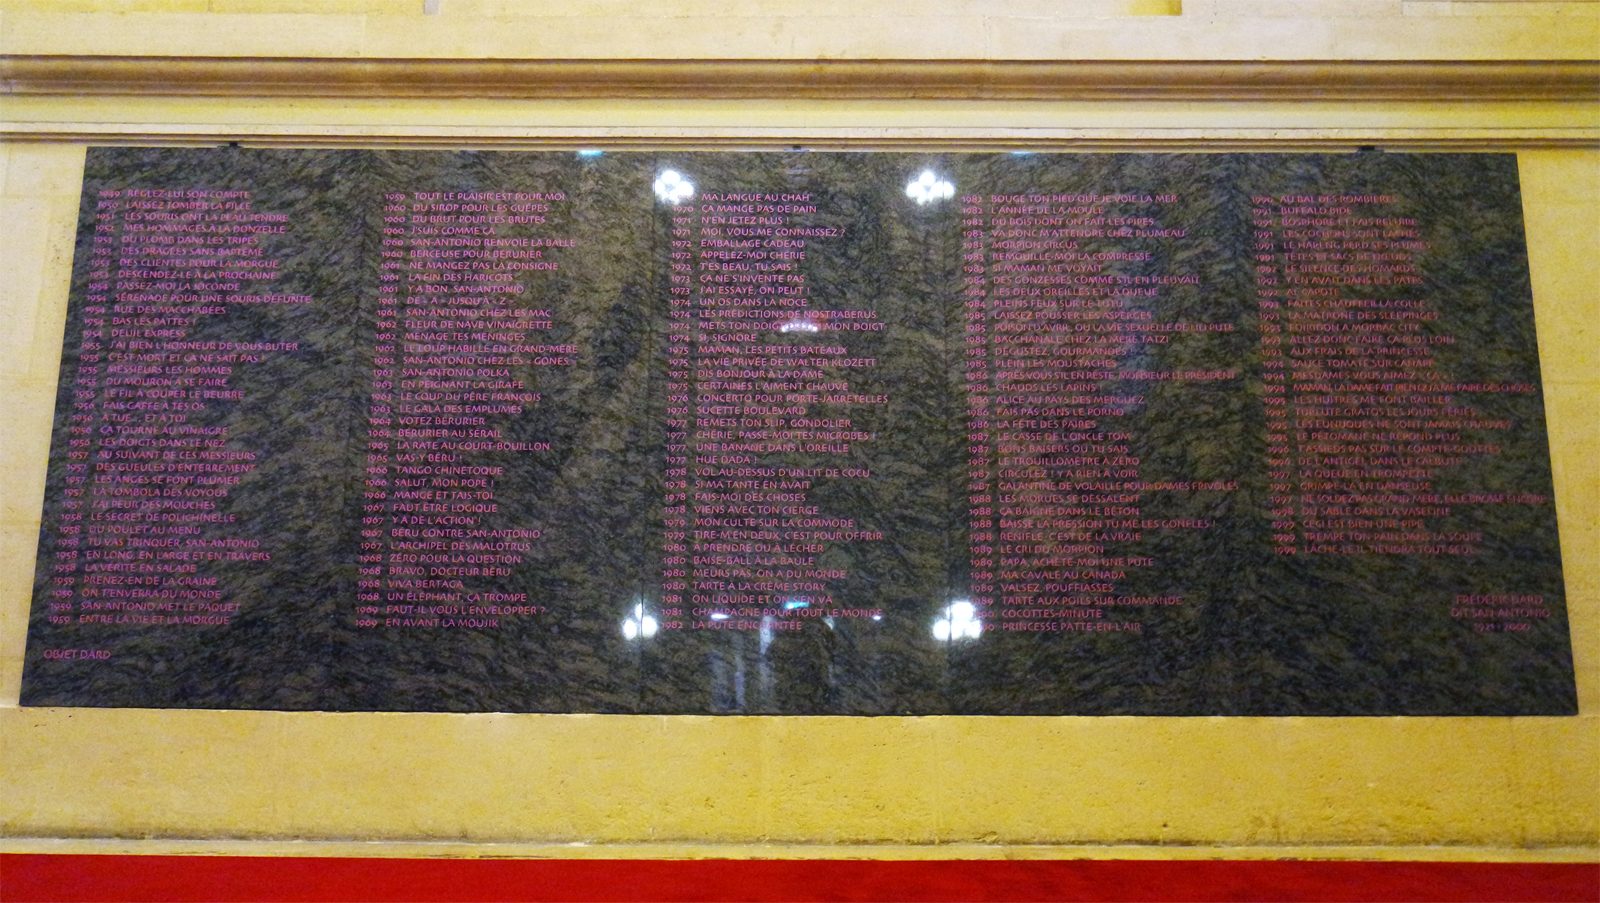 1949 RÉGLEZ-LUI SON COMPTE
1950 LAISSEZ TOMBER LA FILLE
1951 LES SOURIS ONT LA PEAU TENDRE
1952 MES HOMMAGES À LA DONZELLE
1953 DU PLOMB DANS LES TRIPES
1953 DES DRAGÉES SANS BAPTÊME
1953 DES CLIENTES POUR LA MORGUE
1953 DESCENDEZ-LE À LA PROCHAINE
1954 PASSEZ-MOI LA JOCONDE
1954 SÉRÉNADE POUR UNE SOURIS DÉFUNTE
1954 RUE DES MACCHABÉES
1954 BAS LES PATTES !
1954 DEUIL EXPRESS
1955 J'AI BIEN L'HONNEUR DE VOUS BUTER
1955 C'EST MORT ET ÇA NE SAIT PAS !
1955 MESSIEURS LES HOMMES
1955 DU MOURON À SE FAIRE
1955 LE FIL À COUPER LE BEURRE
1956 FAIS GAFFE À TES OS
1956 À TUE... ET À TOI
1956 ÇA TOURNE AU VINAIGRE
1956 LES DOIGTS DANS LE NEZ
1957 AU SUIVANT DE CES MESSIEURS
1957 DES GUEULES D'ENTERREMENT
1957 LES ANGES SE FONT PLUMER
1957 LA TOMBOLA DES VOYOUS
1957 J'AI PEUR DES MOUCHES
1958 LE SECRET DE POLICHINELLE
1958 DU POULET AU MENU
1958 TU VAS TRINQUER, SAN-ANTONIO
1958 EN LONG, EN LARGE ET EN TRAVERS
1958 LA VÉRITÉ EN SALADE
1959 PRENEZ-EN DE LA GRAINE
1959 ON T'ENVERRA DU MONDE
1959 SAN-ANTONIO MET LE PAQUET
1959 ENTRE LA VIE ET LA MORGUE
OBJET DARD
1959 TOUT LE PLAISIR EST POUR MOI
1960 DU SIROP POUR LES GUÊPES
1960 DU BRUT POUR LES BRUTES
1960 J'SUIS COMME ÇA
1960 SAN-ANTONIO RENVOIE LA BALLE
1960 BERCEUSE POUR BÉRURIER
1961 NE MANGEZ PAS LA CONSIGNE
1961 LA FIN DES HARICOTS
1961 Y A BON, SAN-ANTONIO
1961 DE « A » JUSQU'À « Z »
1961 SAN-ANTONIO CHEZ LES MAC
1962 FLEUR DE NAVE VINAIGRETTE
1962 MÉNAGE TES MÉNINGES
1962 LE LOUP HABILLÉ EN GRAND-MÈRE
1962 SAN-ANTONIO CHEZ LES « GONES »
1963 SAN-ANTONIO POLKA
1963 EN PEIGNANT LA GIRAFE
1963 LE COUP DU PÈRE FRANÇOIS
1963 LE GALA DES EMPLUMÉS
1964 VOTEZ BÉRURIER
1964 BÉRURIER AU SÉRAIL
1965 LA RATE AU COURT-BOUILLON
1965 VAS-Y BÉRU !
1966 TANGO CHINETOQUE
1966 SALUT, MON POPE !
1966 MANGE ET TAIS-TOI
1967 FAUT ÊTRE LOGIQUE
1967 Y A DE L'ACTION !
1967 BÉRU CONTRE SAN-ANTONIO
1967 L'ARCHIPEL DES MALOTRUS
1968 ZÉRO POUR LA QUESTION
1968 BRAVO, DOCTEUR BÉRU
1968 VIVA BERTAGA
1968 UN ÉLÉPHANT, ÇA TROMPE
1969 FAUT-IL VOUS L'ENVELOPPER ?
1969 EN AVANT LA MOUJIK
MA LANGUE AU CHAH
1970 ÇA MANGE PAS DE PAIN
1971 N'EN JETEZ PLUS !
1971 MOI, VOUS ME CONNAISSEZ ?
1972 EMBALLAGE CADEAU
1972 APPELEZ-MOI CHÉRIE
1972 T'ES BEAU, TU SAIS !
1973 ÇA NE S'INVENTE PAS
1973 J'AI ESSAYÉ, ON PEUT !
1974 UN OS DANS LA NOCE
1974 LES PRÉDICTIONS DE NOSTRABÉRUS
1974 METS TON DOIGT MON DOIGT
1974 SI, SIGNORE
1975 MAMAN, LES PETITS BATEAUX
1975 LA VIE PRIVÉE DE WALTER KLOZETT
1975 DIS BONJOUR À LA DAME
1975 CERTAINES L'AIMENT CHAUVE
1976 CONCERTO POUR PORTE-JARRETELLES
1976 SUCETTE BOULEVARD
1977 REMETS TON SLIP, GONDOLIER
1977 CHÉRIE, PASSE-MOI TES MICROBES !
1977 UNE BANANE DANS L'OREILLE
1977 HUE DADA !
1978 VOL AU-DESSUS D'UN LIT DE COCU
1978 SI MA TANTE EN AVAIT
1978 FAIS-MOI DES CHOSES
1978 VIENS AVEC TON CIERGE
1979 MON CULTE SUR LA COMMODE
1979 TIRE-M'EN DEUX, C'EST POUR OFFRIR
1980 À PRENDRE OU À LÉCHER
1980 BAISE-BALL À LA BAULE
1980 MEURS PAS, ON A DU MONDE
1980 TARTE À LA CRÈME STORY
1981 ON LIQUIDE ET ON S'EN VA
1981 CHAMPAGNE POUR TOUT LE MONDE
1982 LA PUTE ENCHANTÉE
1982 BOUGE TON PIED QUE JE VOIE LA MER
1982 L'ANNÉE DE LA MOULE
1982 DU BOIS DONT ON FAIT LES PIPES
1983 VA DONC M'ATTENDRE CHEZ PLUMEAU
1983 MORPION CIRCUS
1983 REMOUILLE-MOI LA COMPRESSE
1983 SI MAMAN ME VOYAIT
1984 DES GONZESSES COMME S'IL EN PLEUVAIT
1984 LES DEUX OREILLES ET LA QUEUE
1984 PLEINS FEUX SUR LE TUTU
1985 LAISSEZ POUSSER LES ASPERGES
1985 POISON D'AVRIL, OU LA VIE SEXUELLE DE LILI PUTE
1985 BACCHANALE CHEZ LA MÈRE TATZI
1985 DÉGUSTEZ, GOURMANDES !
1985 PLEIN LES MOUSTACHES
1986 APRÈS VOUS S'IL EN RESTE, MONSIEUR LE PRÉSIDENT
1986 CHAUDS LES LAPINS !
1986 ALICE AU PAYS DES MERGUEZ
1986 FAIS PAS DANS LE PORNO
1986 LA FÊTE DES PAIRES
1987 LE CASSE DE L'ONCLE TOM
1987 BONS BAISERS OÙ TU SAIS
1987 LE TROUILLOMÈTRE À ZÉRO
1987 CIRCULEZ ! Y A RIEN À VOIR
1987 GALANTINE DE VOLAILLE POUR DAMES FRIVOLES
1988 LES MORUES SE DESSALENT
1988 ÇA BAIGNE DANS LE BÉTON
1988 BAISSE LA PRESSION TU ME LES GONFLES !
1988 RENIFLE, C'EST DE LA VRAIE
1989 LE CRI DU MORPION
1989 PAPA, ACHÈTE-MOI UNE PUTE
1989 MA CAVALE AU CANADA
1989 VALSEZ, POUFFIASSES
1989 TARTE AUX POILS SUR COMMANDE
COCOTTES-MINUTE
PRINCESSE PATTE-EN-L'AIR
1990 AU BAL DES ROMBIÈRES
1991 BUFFALO BIDE
1991 BOSPHORE ET FAIS RELUIRE
1991 LES COCHONS SONT LÂCHÉS
1991 LE HARENG PERD SES PLUMES
1991 TÊTES ET SACS DE NŒUDS
1992 LE SILENCE DES HOMARDS
1992 Y EN AVAIT DANS LES PÂTES
1992 AL CAPOTE
1993 FAITES CHAUFFER LA COLLE
1993 LA MATRONE DES SLEEPINGES
1993 FOIRIDON À MORBAC CITY
1993 ALLEZ DONC FAIRE ÇA PLUS LOIN
1993 AUX FRAIS DE LA PRINCESSE
1994 SAUCE TOMATE SUR CANAPÉ
1994 MESDAMES VOUS AIMEZ « ÇA »
1994 MAMAN, LA DAME FAIT RIEN QU'À ME FAIRE DES CHOSES
1995 LES HUÎTRES ME FONT BÂILLER
1995 TURLUTE GRATOS LES JOURS FÉRIÉS
1995 LES EUNUQUES NE SONT JAMAIS CHAUVES
1995 LE PÉTOMANE NE RÉPOND PLUS
1996 T'ASSIEDS PAS SUR LE COMPTE-GOUTTES
1996 DE L'ANTIGEL DANS LE CALBUTE
1997 LA QUEUE EN TROMPETTE
1997 GRIMPE-LA EN DANSEUSE
1997 NE SOLDEZ PAS GRAND-MÈRE, ELLE BROSSE ENCORE
1998 DU SABLE DANS LA VASELINE
1999 CECI EST BIEN UNE PIPE
1999 TREMPE TON PAIN DANS LA SOUPE
1999 LÂCHE-LE, IL TIENDRA TOUT SEUL
FRÉDÉRIC DARD
DIT SAN-ANTONIO
1921 / 2000